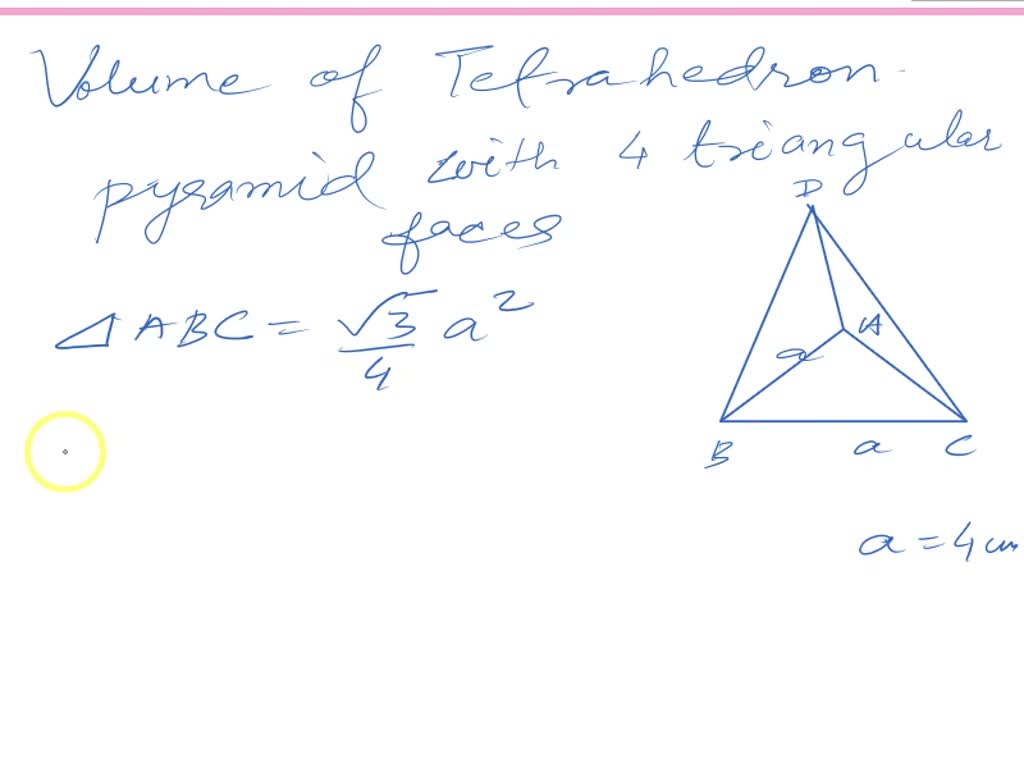 Volume of Tetrahedron
pyramid with 4 triangular
faces
△ABC = √3/4 a²
D
A
a
B
a
C
a = 4 cm